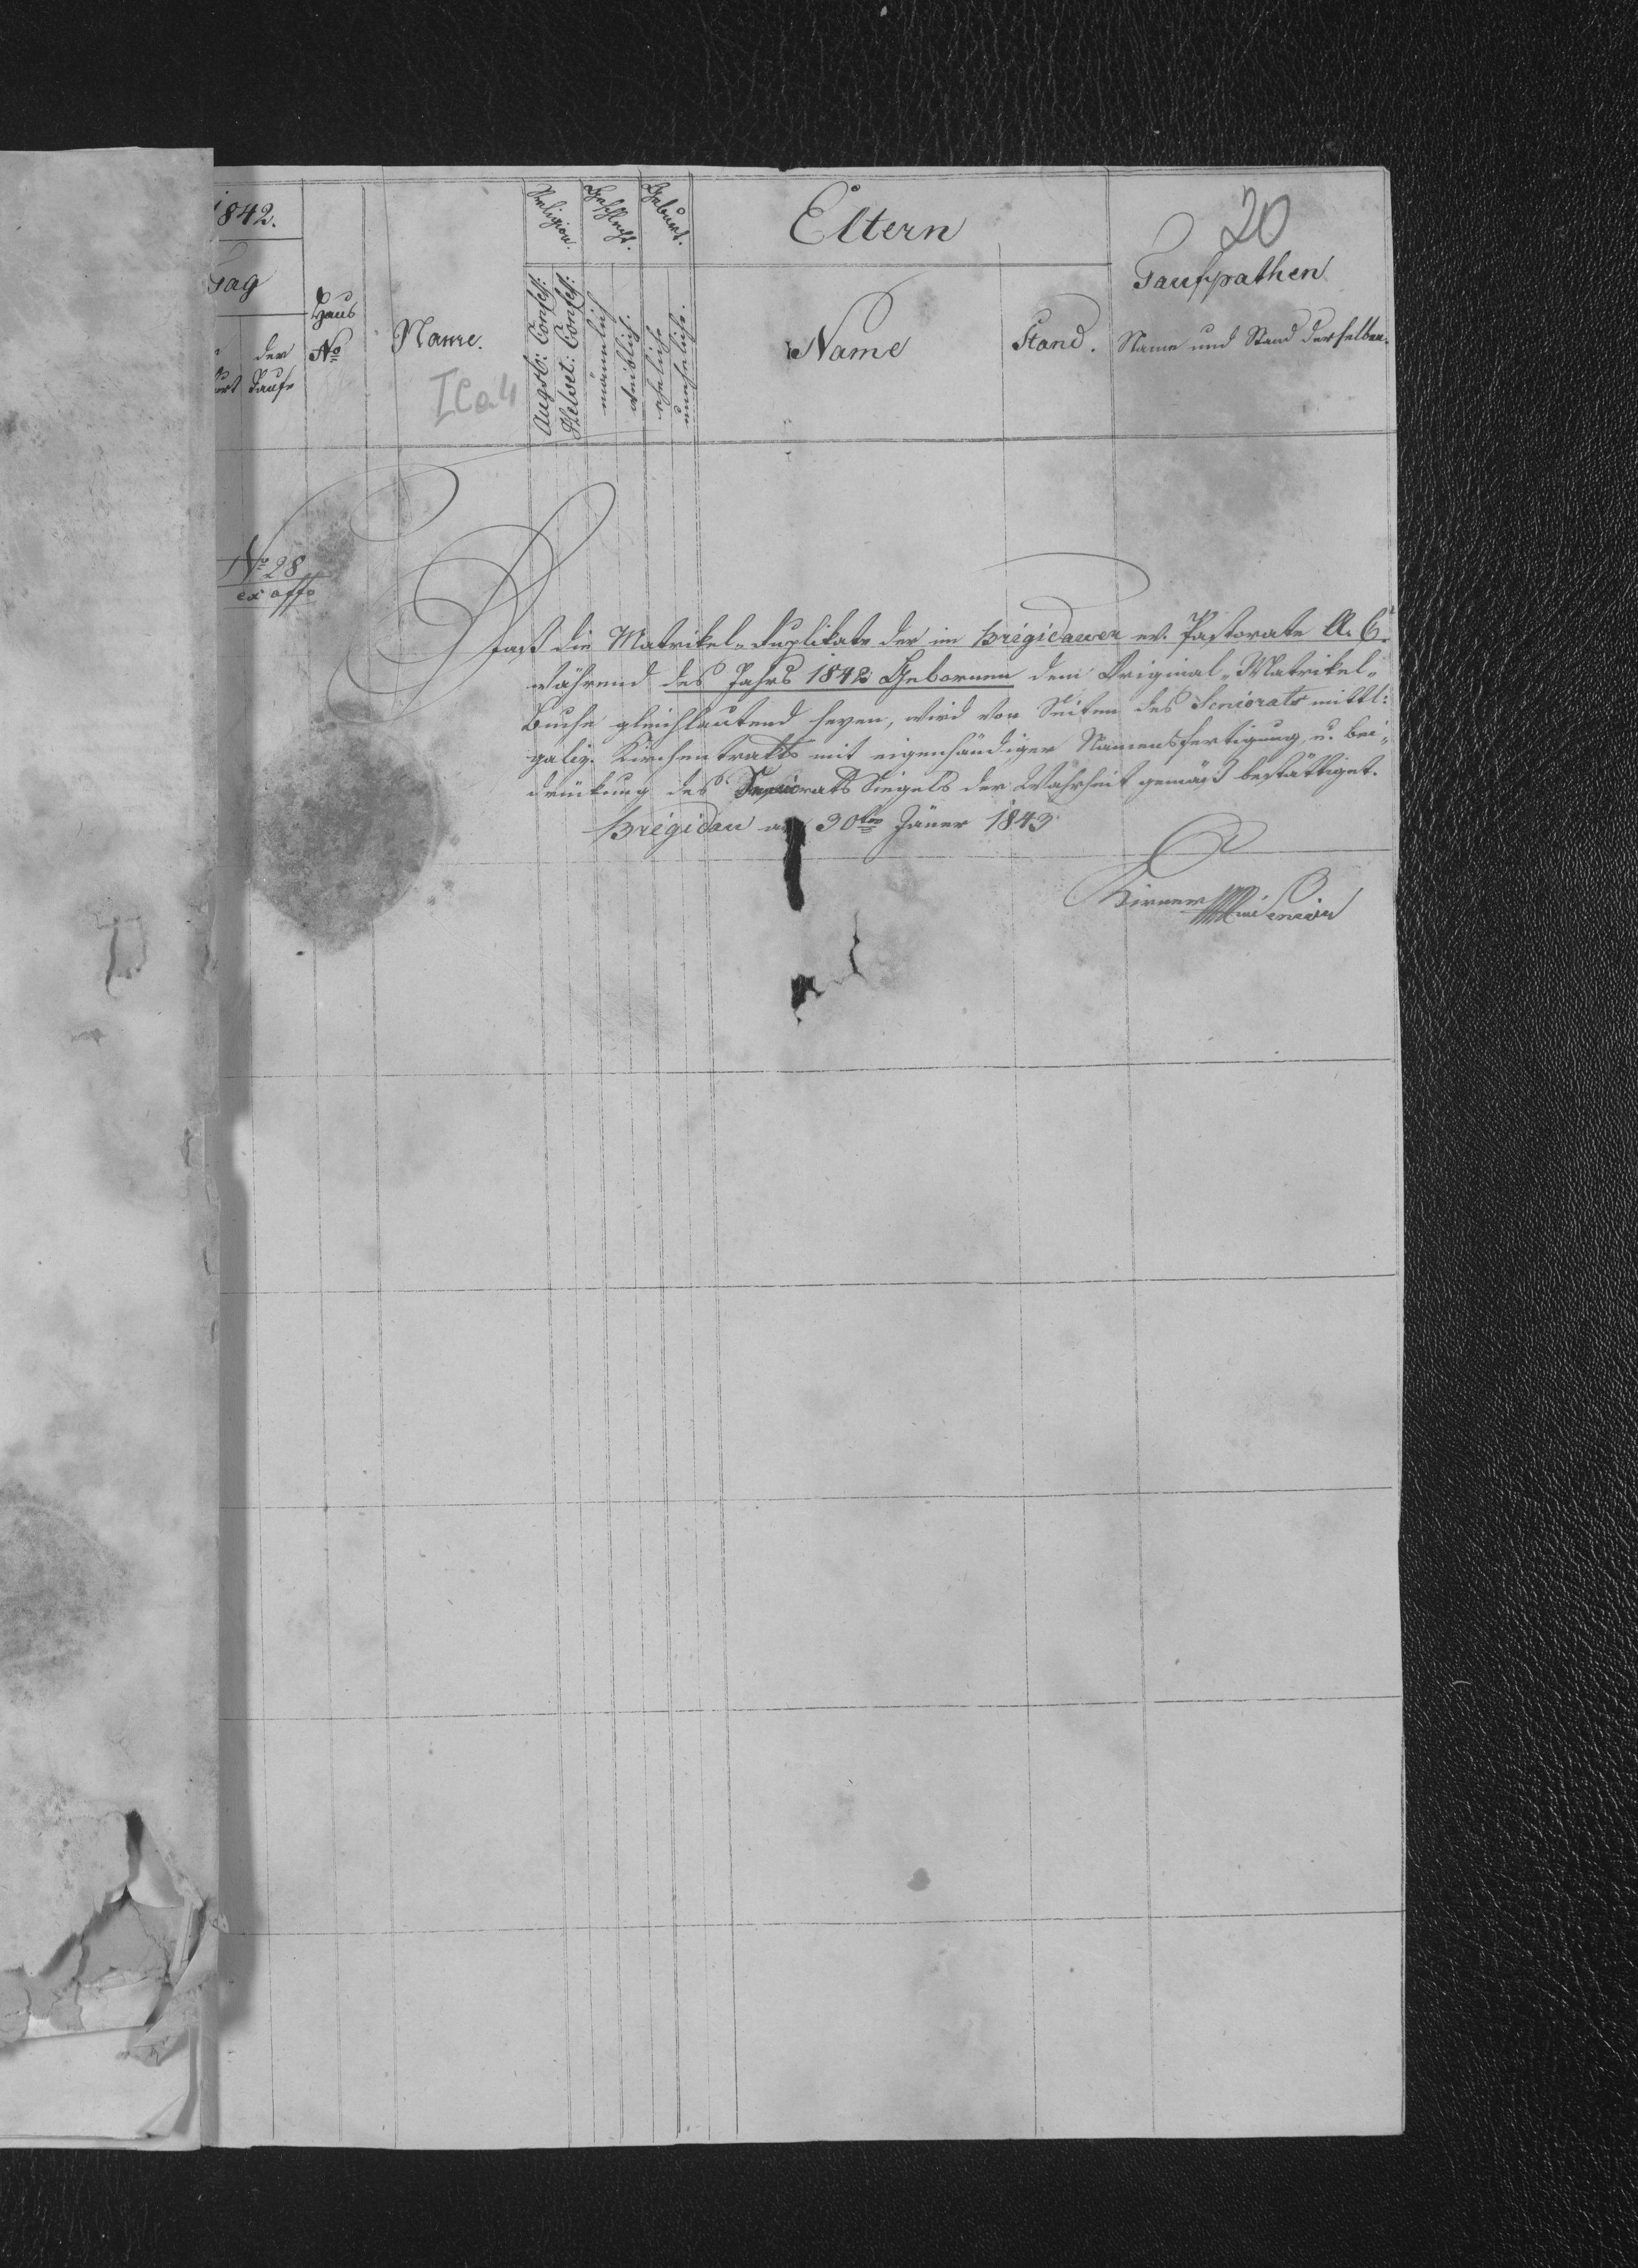 1842.
Tag
der
Taufe
Haus
No
Name.
ICa4
Religion.
Augsb: Confess:
Helvet: Confess:
Geschlecht.
männlich
weiblich.
Geburt.
eheliche
uneheliche.
Eltern
Name
Stand.
20
Taufpathen
Name und Stand derselben.
No 28
ex offo
Daß die Matrikel-Duplikate der im Brigidauer ev. Pastorate A. C.
während des Jahrs 1842 Gebornen dem Original-Matrikel-
Buche gleichlautend seyen, wird von Seiten des Seniorats mittl:
galiz. Kirchentrakts mit eigenhändiger Namensfertigung u. Bei-
drückung des Seniorats Siegels der Wahrheit gemäß bestättiget.
Brigidau 30ten Jäner 1843
Senior